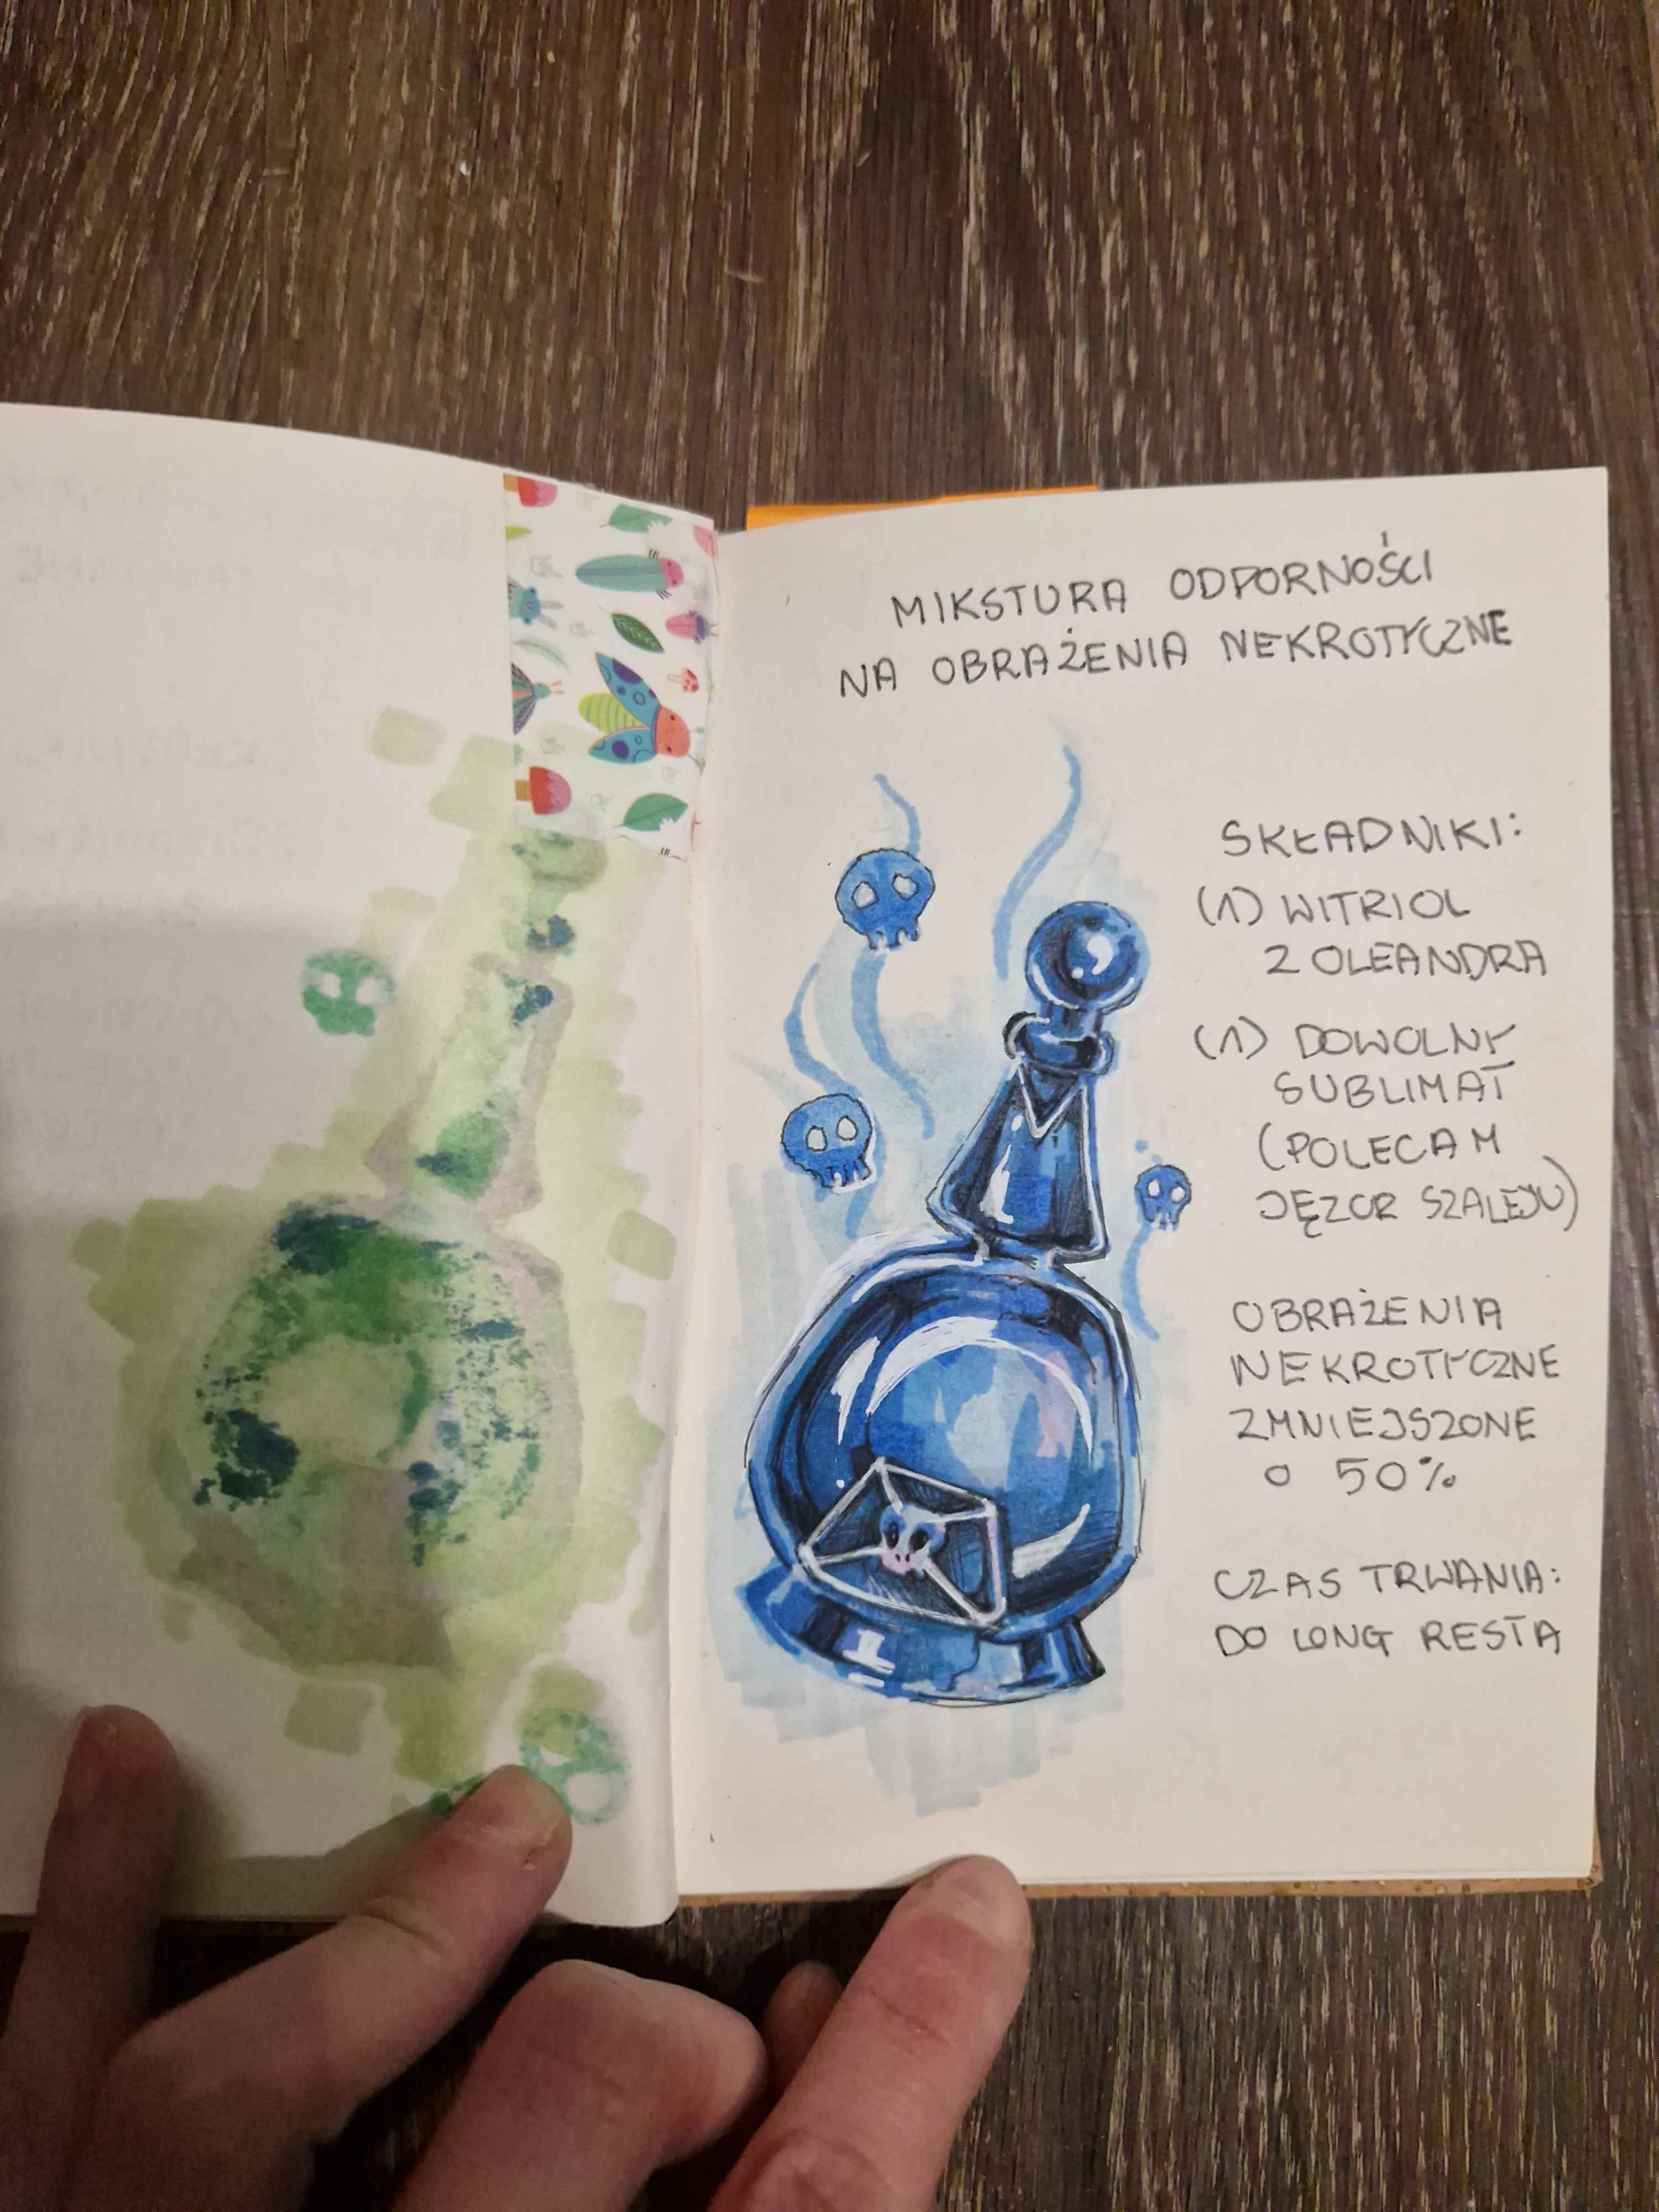 MIKSTURA ODPORNOŚCI
NA OBRAŻENIA NEKROTYCZNE
SKŁADNIKI:
(1) WITRIOL
Z OLEANDRA
(1) DOWOLNY
SUBLIMAT
(POLECAM
JĘZOR SZALEJU)
OBRAŻENIA
NEKROTYCZNE
ZMNIEJSZONE
O 50%
CZAS TRWANIA:
DO LONG RESTA